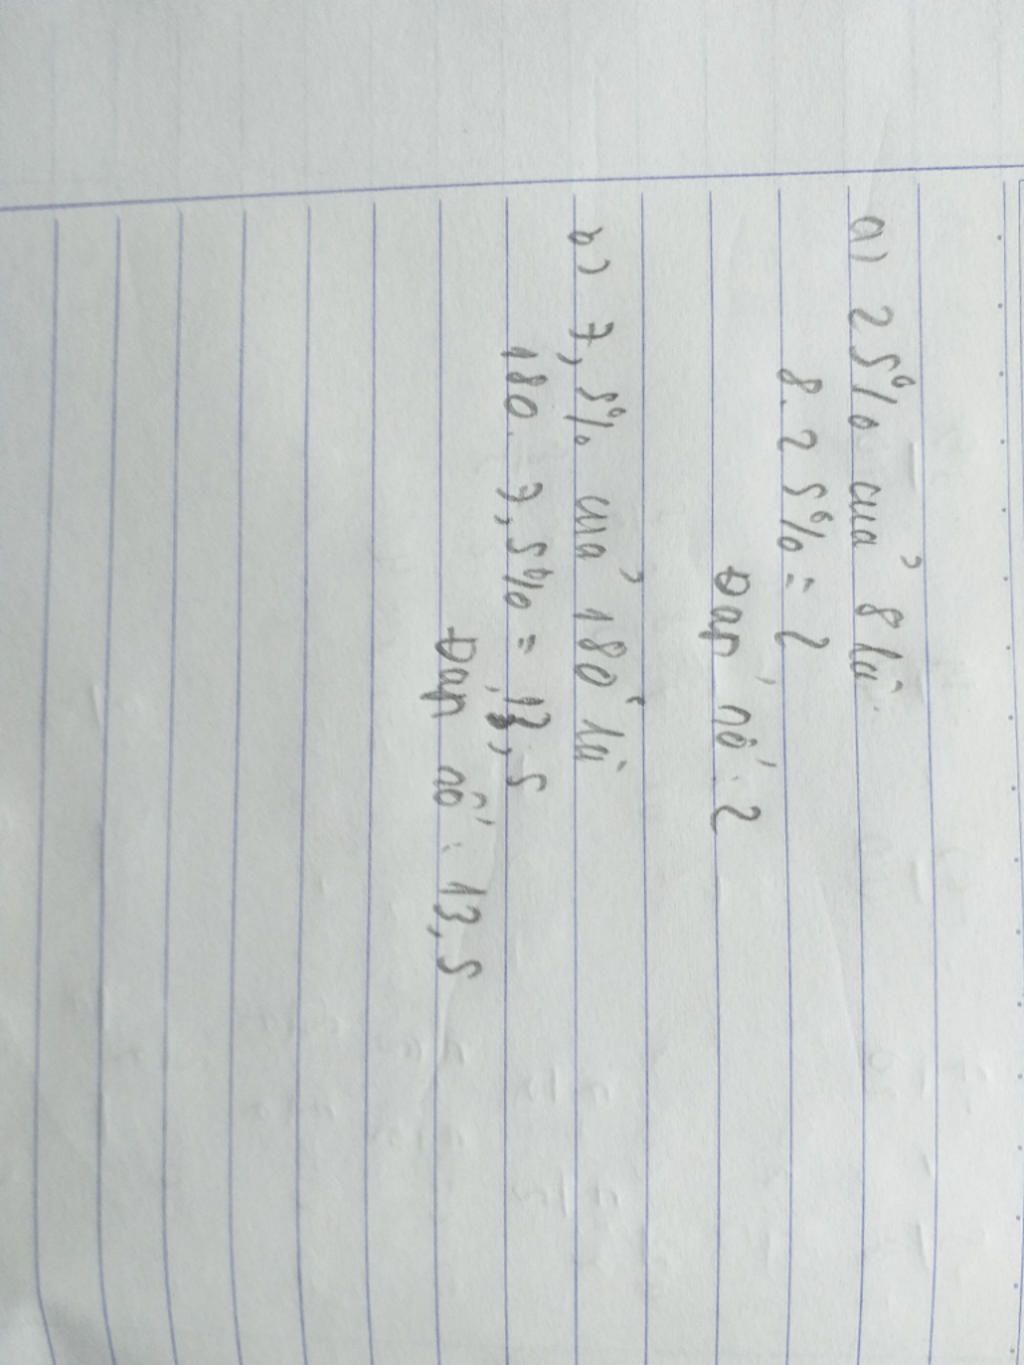 a) 25% của 8 là:
8.25% = 2
Đáp số: 2
b) 7,5% của 180 là
180.7,5% = 13,5
Đáp số: 13,5